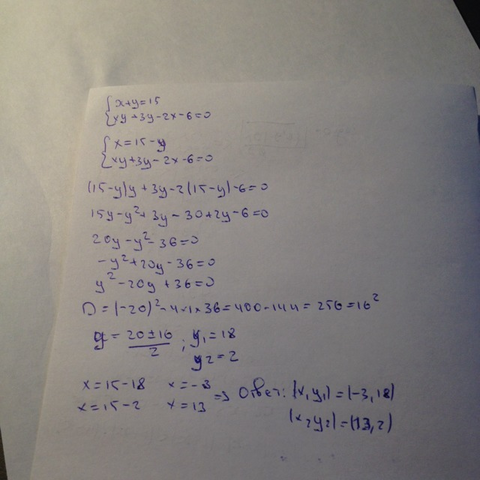 {x+y=15
{xy+3y-2x-6=0
{x=15-y
{xy+3y-2x-6=0
(15-y)y+3y-2(15-y)-6=0
15y-y²+3y-30+2y-6=0
20y-y²-36=0
-y²+20y-36=0
y²-20y+36=0
D=(-20)²-4×1×36=400-144=256=16²
y=(20±16)/2; y₁=18
y₂=2
x=15-18 x=-3 => Ответ: (x₁y₁)=(-3,18)
x=15-2 x=13
(x₂y₂)=(13,2)